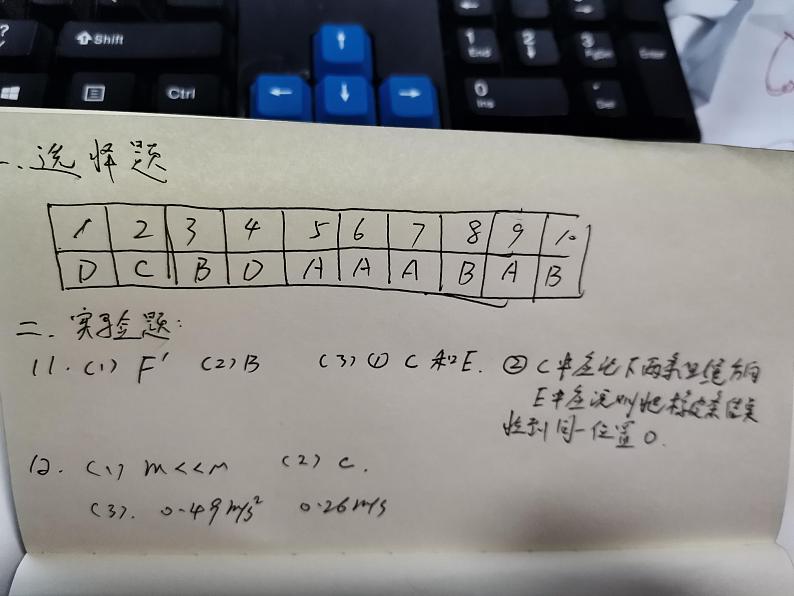 Shift
Ctrl
1 End
2
3 PgDn
Enter
0 Ins
一、选择题
1 2 3 4 5 6 7 8 9 10
D C B D A A A B A B
二、实验题:
11. (1) F′ (2) B (3) ① C和E. ② C中应记下两条细绳方向
E中应
到同一位置O.
12. (1) m<<M (2) C.
(3). 0.49m/s² 0.26m/s